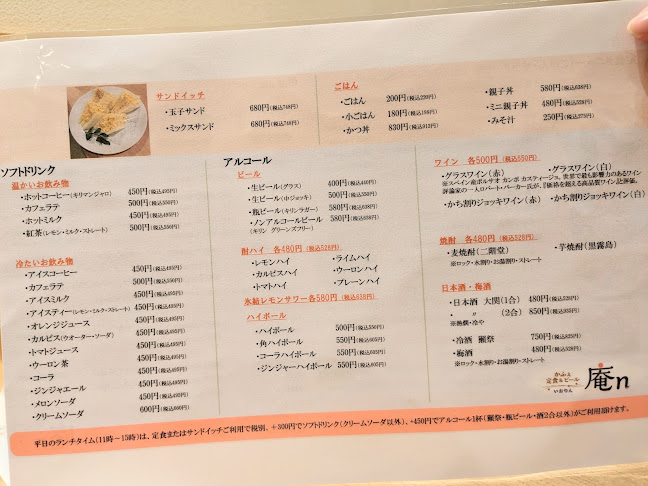 サンドイッチ
・玉子サンド 680円(税込748円)
・ミックスサンド 680円(税込748円)
ごはん
・ごはん 200円(税込220円)
・小ごはん 180円(税込198円)
・かつ丼 830円(税込913円)
・親子丼 580円(税込638円)
・ミニ親子丼 480円(税込528円)
・みそ汁 250円(税込275円)
ソフトドリンク
温かいお飲み物
・ホットコーヒー(キリマンジャロ) 450円(税込495円)
・カフェラテ 500円(税込550円)
・ホットミルク 450円(税込495円)
・紅茶(レモン・ミルク・ストレート) 500円(税込550円)
冷たいお飲み物
・アイスコーヒー 450円(税込495円)
・カフェラテ 500円(税込550円)
・アイスミルク 450円(税込495円)
・アイスティー(レモン・ミルク・ストレート) 450円(税込495円)
・オレンジジュース 450円(税込495円)
・カルピス(ウオーター・ソーダ) 450円(税込495円)
・トマトジュース 450円(税込495円)
・ウーロン茶 450円(税込495円)
・コーラ 450円(税込495円)
・ジンジャエール 450円(税込495円)
・メロンソーダ 450円(税込495円)
・クリームソーダ 600円(税込660円)
アルコール
ビール
・生ビール(グラス) 400円(税込440円)
・生ビール(中ジョッキ) 500円(税込550円)
・瓶ビール(キリン ラガー) 580円(税込638円)
・ノンアルコールビール 580円(税込638円)
(キリン グリーンズフリー)
酎ハイ 各480円(税込528円)
・レモンハイ ・ライムハイ
・カルピスハイ ・ウーロンハイ
・トマトハイ ・プレーンハイ
氷結レモンサワー各580円(税込638円)
ハイボール
・ハイボール 500円(税込550円)
・角ハイボール 550円(税込605円)
・コーラハイボール 550円(税込605円)
・ジンジャーハイボール 550円(税込605円)
ワイン 各500円(税込550円)
・グラスワイン(赤) ・グラスワイン(白)
※スペイン産ボルサオ カンポ カスティージョ。世界で最も影響力のあるワイン
評論家の一人ロバート・パーカー氏が、『価格を超える高品質ワイン』と評価。
・かち割りジョッキワイン(赤) ・かち割りジョッキワイン(白)
焼酎 各480円(税込528円)
・麦焼酎(二階堂) ・芋焼酎(黒霧島)
※ロック・水割り・お湯割り・ストレート
日本酒・梅酒
・日本酒 大関(1合) 480円(税込528円)
・ 〃 (2合) 850円(税込935円)
※熱燗・冷や
・冷酒 獺祭 750円(税込825円)
・梅酒 480円(税込528円)
※ロック・水割り・お湯割り・ストレート
かふぇ
定食&ビール
いおりん
庵n
平日のランチタイム(11時〜15時)は、定食またはサンドイッチご利用で税別、+300円でソフトドリンク(クリームソーダ以外)、+450円でアルコール1杯(獺祭・瓶ビール・酒2合以外)がご利用頂けます。